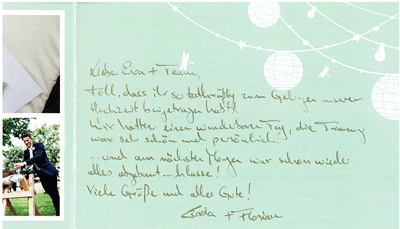 Liebe Eva + Team,
toll, dass ihr so tatkräftig zum Gelingen unserer
Hochzeit beigetragen habt!
Wir hatten einen wunderbaren Tag, die Trauung
war sehr schön und persönlich.
...und am nächsten Morgen war schon wieder
alles abgebaut... klasse!
Viele Grüße und alles Gute!
Linda + Florian